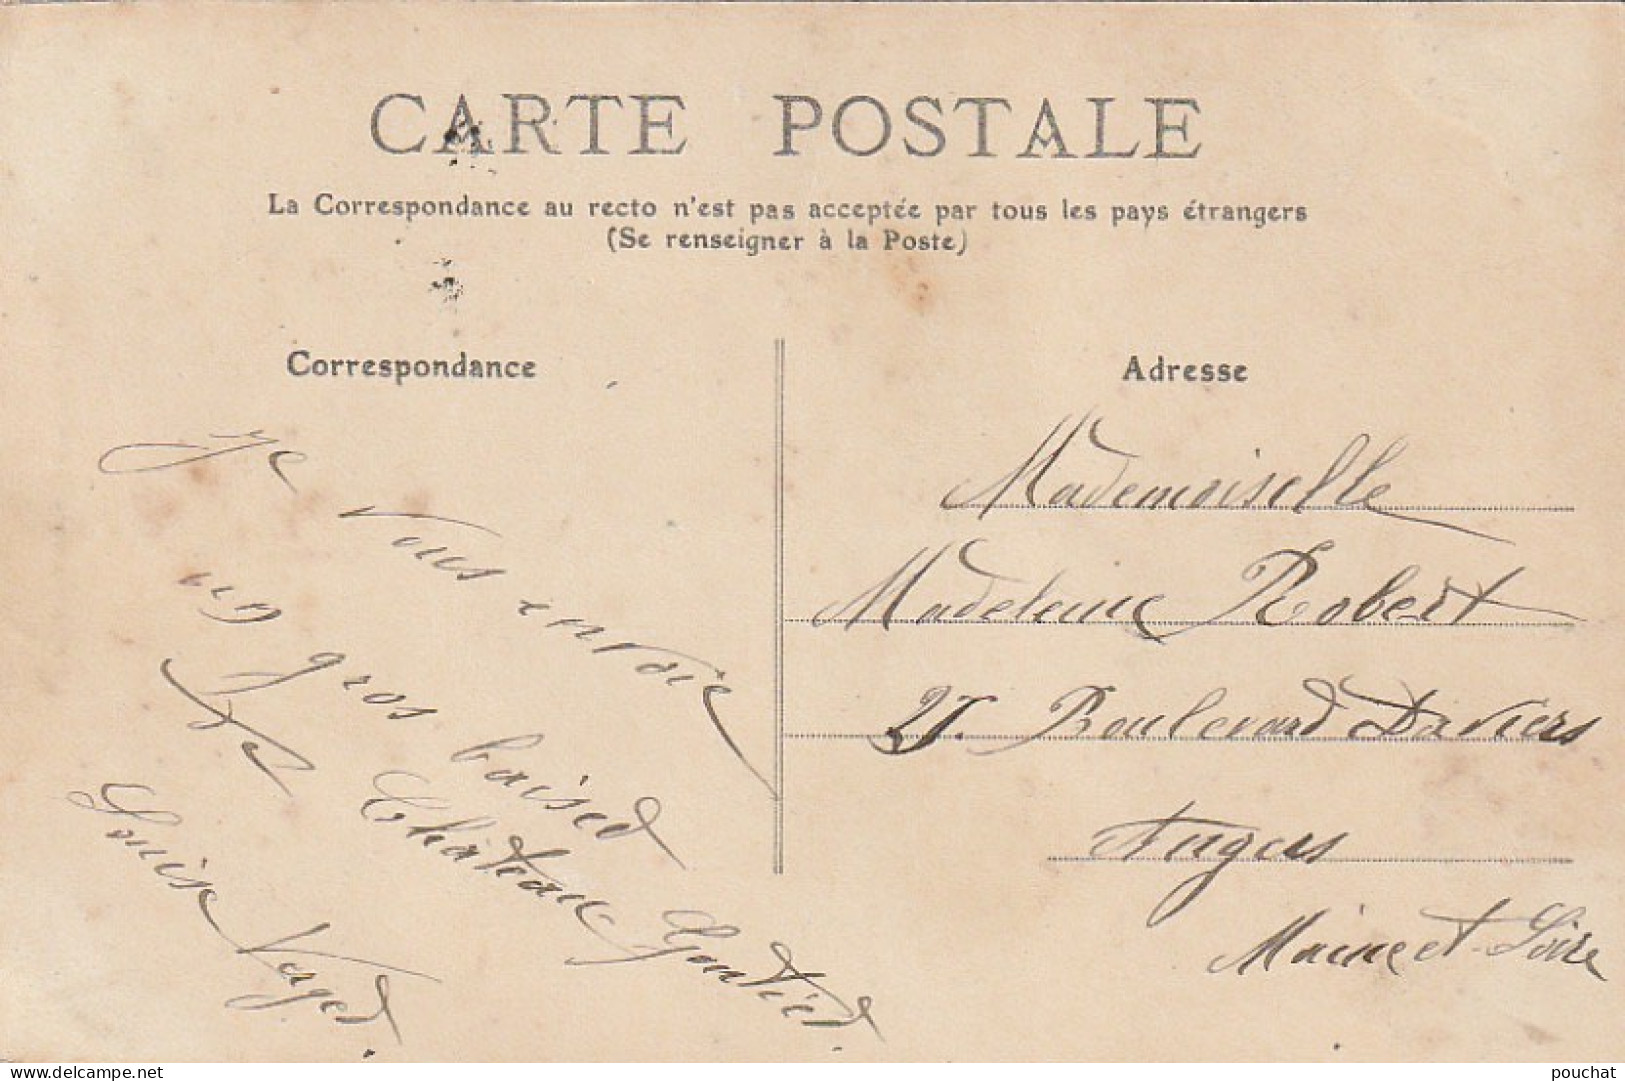 CARTE POSTALE
La Correspondance au recto n'est pas acceptée par tous les pays étrangers
(Se renseigner à la Poste)
Correspondance
Je vous envoie
un gros baised
De Château Gontied.
Louise
Adresse
Mademoiselle
Madeleine Robert
Boulevard Daviers
Angers
Maine et-Loire
www.delcampe.net
pouchat